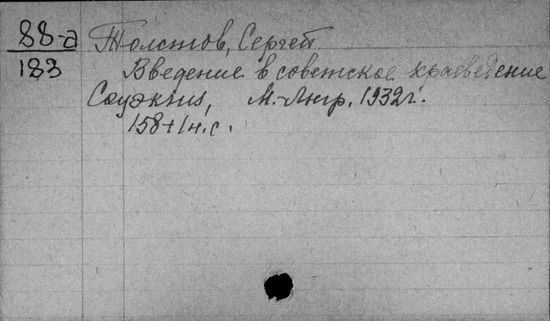 88-а
183
Толстов, Сергей
Введение в советское краеведение
Соцэкгиз, М.-Лнгр. 1932г.
158+1н.с.